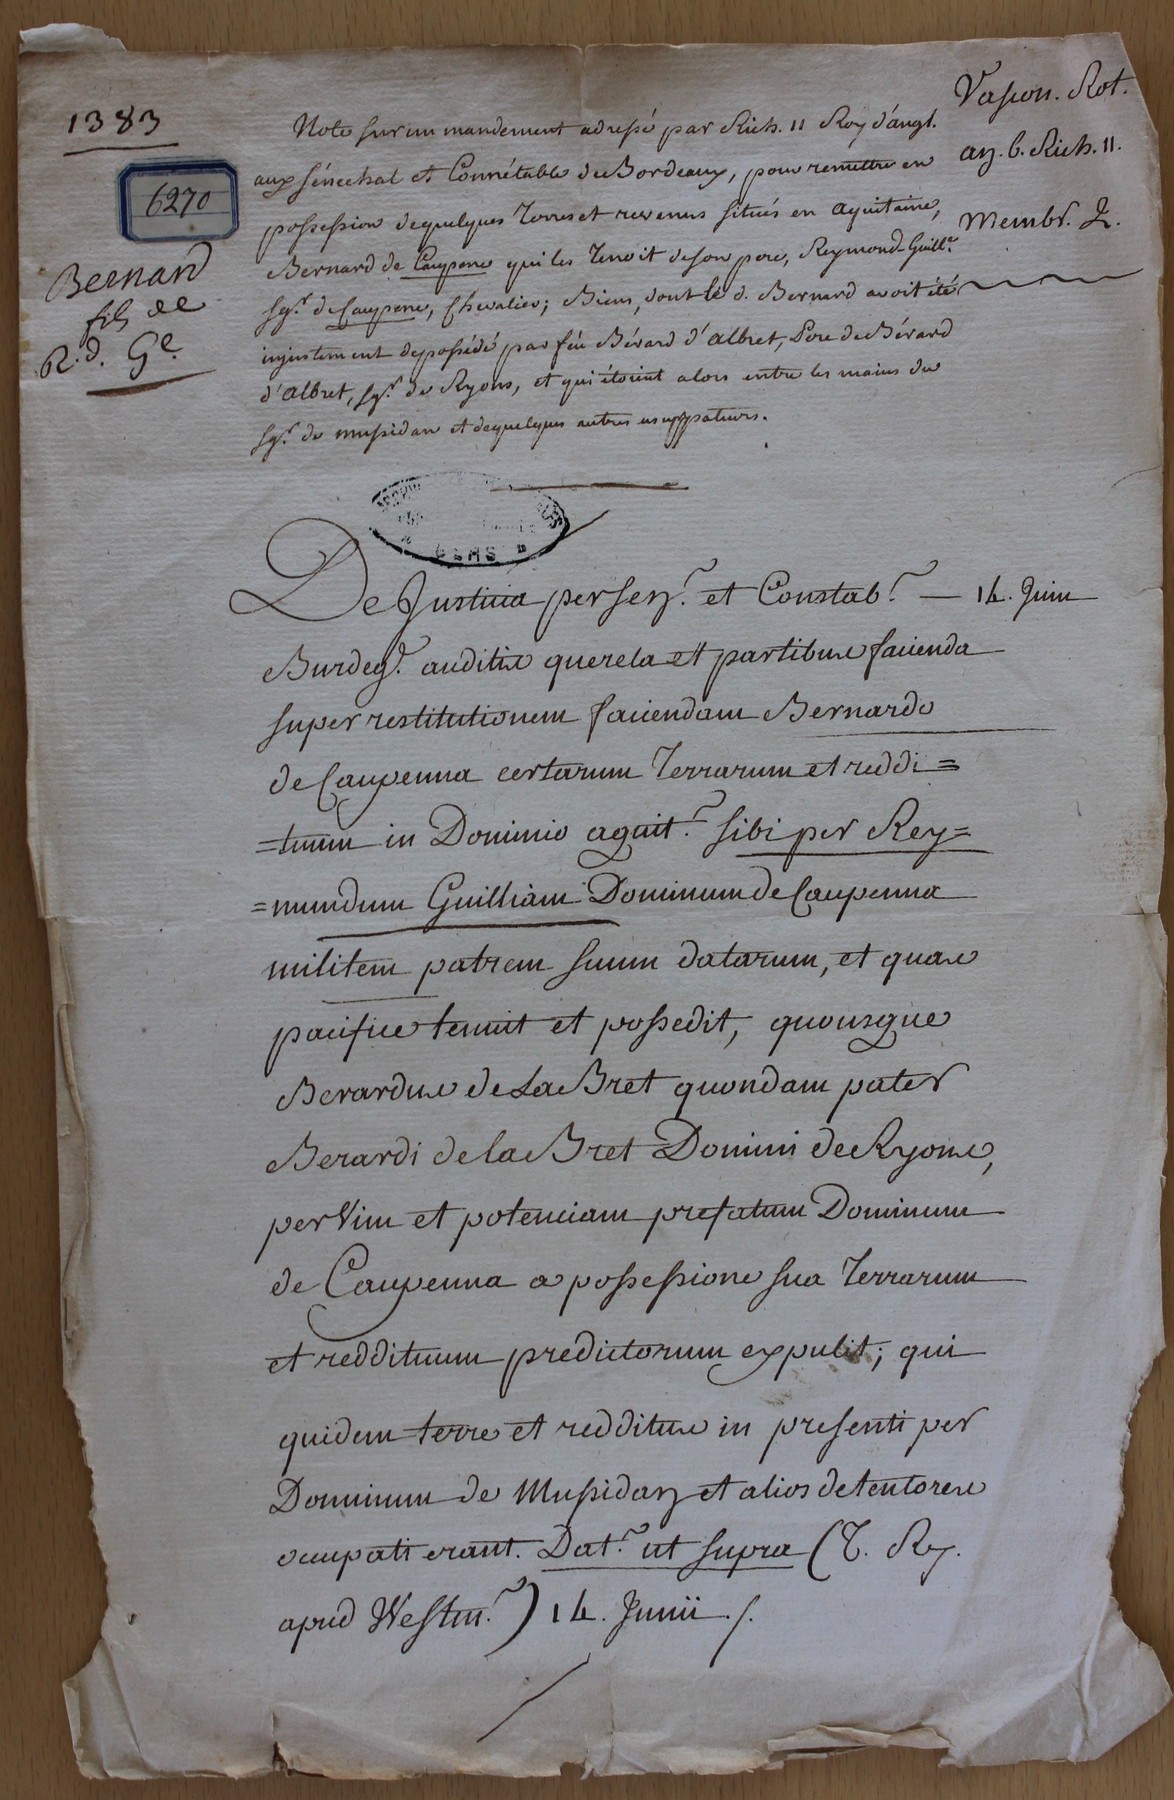 1383
6270
Bernard
fils de
R.d. Ge.
Vascon. Rot.
an. 6. Rich. 11.
Membr. 2.
Note sur un mandement adressé par Rich. 11 Roy d'angl.
aux sénechal et Connétable de Bordeaux, pour remettre en
possession de quelques Terres et revenus situés en aquitaine,
Bernard de Caupene qui les Tenoit de son pere, Reymond-Guill.e
sgr. de Caupene, Chevalier; Biens, dont le d. Bernard avoit été
injustement depossédé par féu Bérard d'Albret, Pere de Bérard
d'Albret, sgr. de Ryons, et qui étoient alors entre les mains du
sgr. de mussidan et de quelques autres usurpateurs.
GERS
De Justicia per sen.r et Constab.r — 14. Juin
Burdeg.l auditis querela et partibus facienda
super restitutionem faciendam Bernardo
de Caupenna certarum Terrarum et reddi=
=tuum in Dominio aquit.r sibi per Rey=
=mundum Guilliam Dominum de Caupenna
militem patrem suum datarum, et quas
pacifice tenuit et possedit, quousque
Berardus de LaBret quondam pater
Berardi de la Bret Domini de Ryons,
per Vim et potenciam prefatum Dominum
de Caupenna a possessione sua Terrarum
et reddituum predictorum expulit; qui
quidem terre et redditus in presenti per
Dominum de Mussidan et alios detentores
occupati erant. Dat.r ut supra (T. Rey.
apud Westm.r) 14. Junii ./.